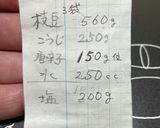 3袋
枝豆 560g
こうじ 250g
唐辛子 150g位
水 250cc
塩 200g